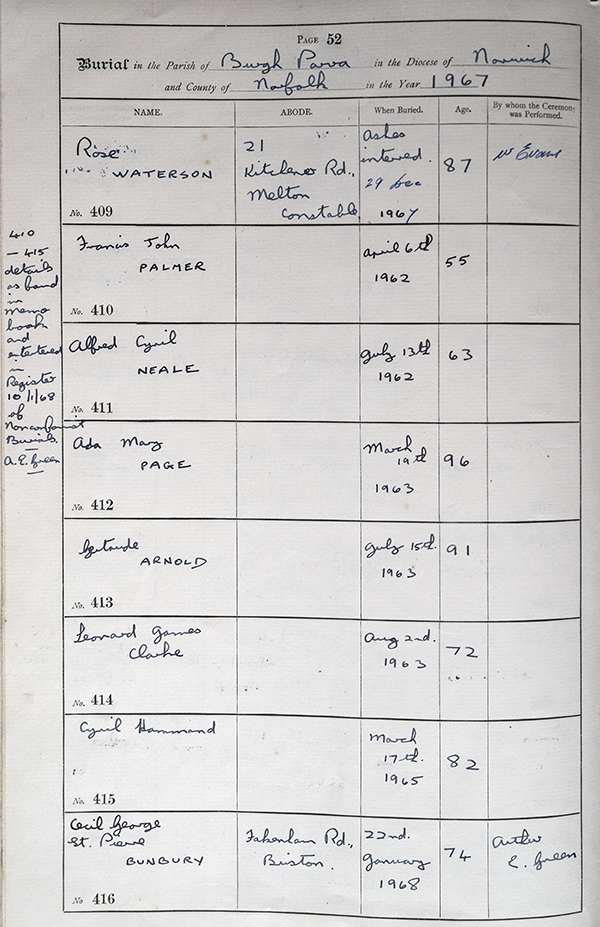 PAGE 52
Burial in the Parish of Burgh Parva in the Diocese of Norwich
and County of Norfolk in the Year 1967
NAME. ABODE. When Buried. Age. By whom the Ceremony was Performed.
Rose
WATERSON
No. 409
21
Kitchener Rd.,
Melton
Constable
Ashes
interred.
29 Dec
1967
87
W Evans
410
— 415
details
as found
in
memo
book
and
entertered
in
Register
10/1/68
of
Nonconformist
Burials.
A. E. Green
Francis John
PALMER
No. 410
April 6th
1962
55
Alfred Cyril
NEALE
No. 411
July 13th
1962
63
Ada Mary
PAGE
No. 412
March
19th
1963
96
Gertrude
ARNOLD
No. 413
July 15th.
1963
91
Leonard James
Clarke
No. 414
Aug 2nd.
1963
72
Cyril Hammand
No. 415
March
17th.
1965
82
Cecil George
St. Pierre
BUNBURY
No. 416
Fakenham Rd.,
Briston.
22nd.
January
1968
74
Arthur
E. Green